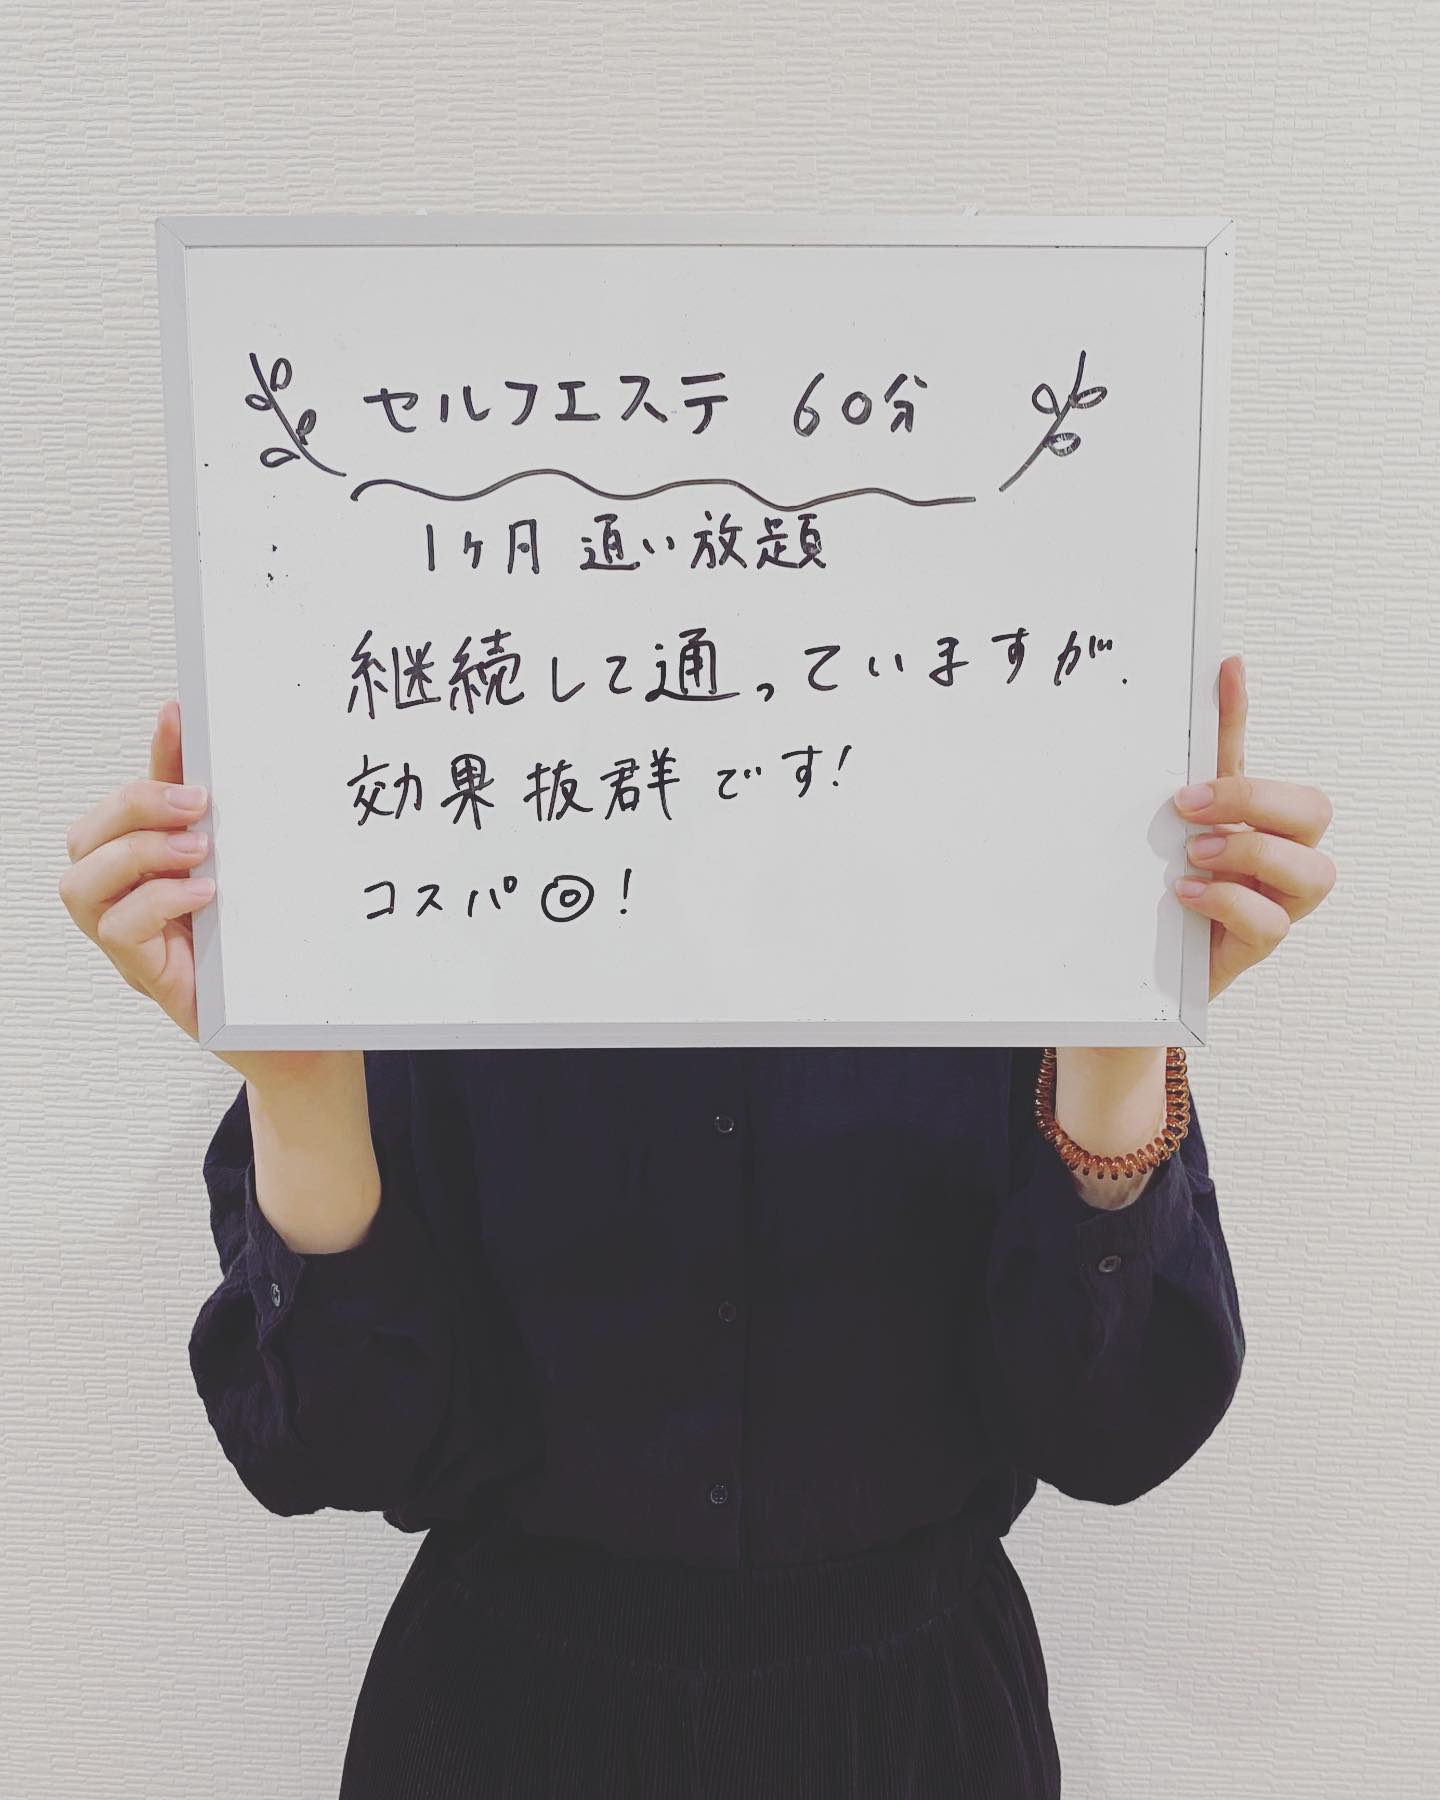 セルフエステ 60分
1ヶ月 通い放題
継続して通っていますが、
効果抜群です!
コスパ◎!